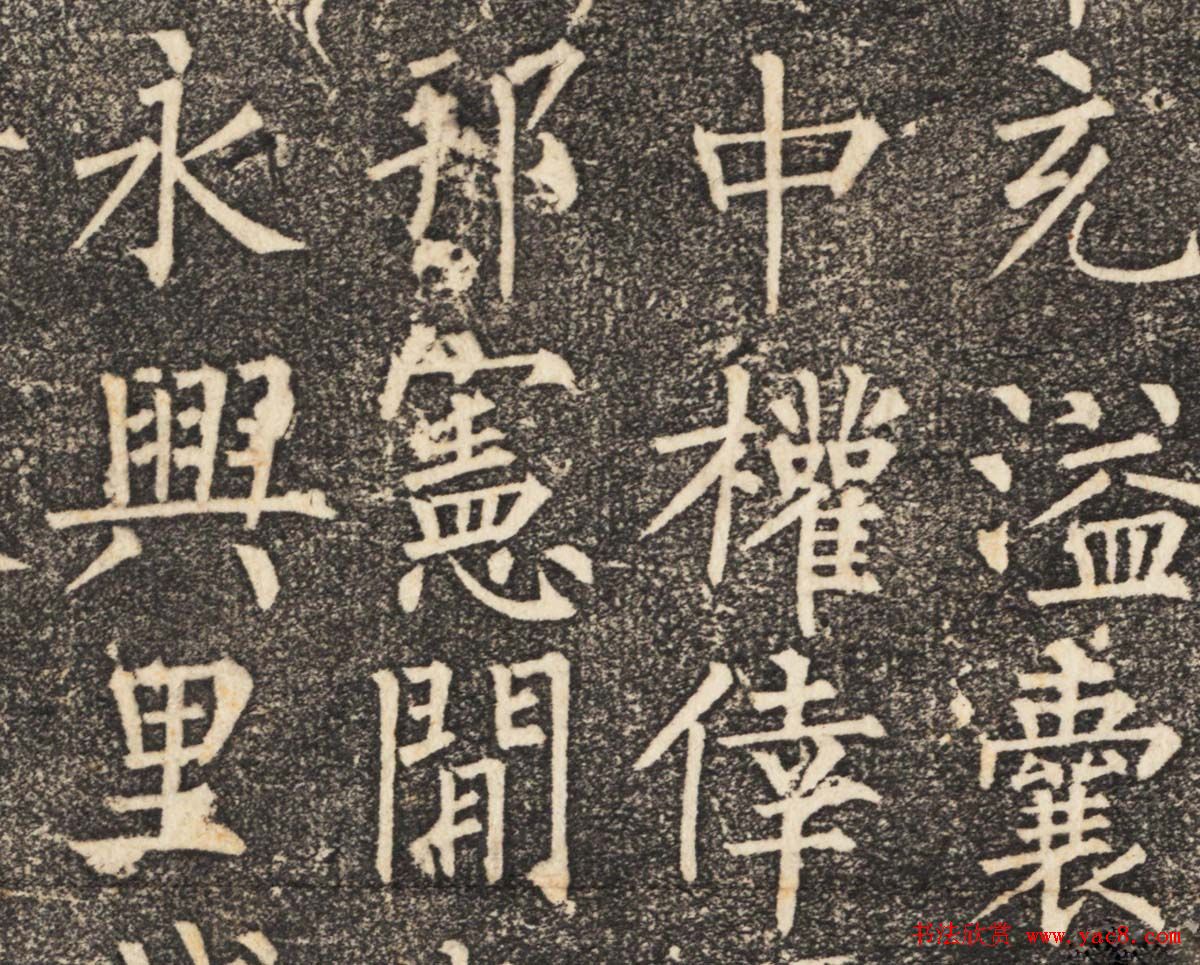 充溢囊
中權倖
邦憲閒
永興里
书法欣赏 www.yac8.com